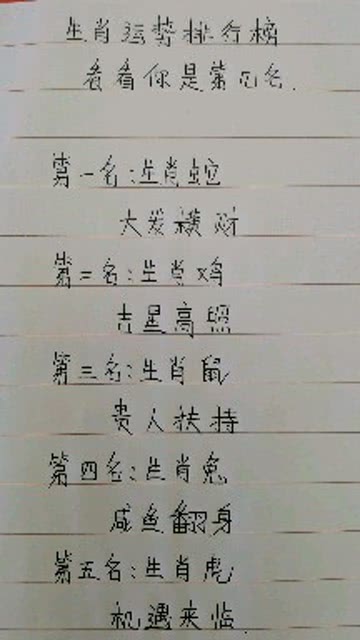 生肖运势排行榜
看看你是第几名.
第一名:生肖蛇
大发横财
第二名:生肖鸡
吉星高照
第三名:生肖鼠
贵人扶持
第四名:生肖兔
咸鱼翻身
第五名:生肖虎
机遇来临